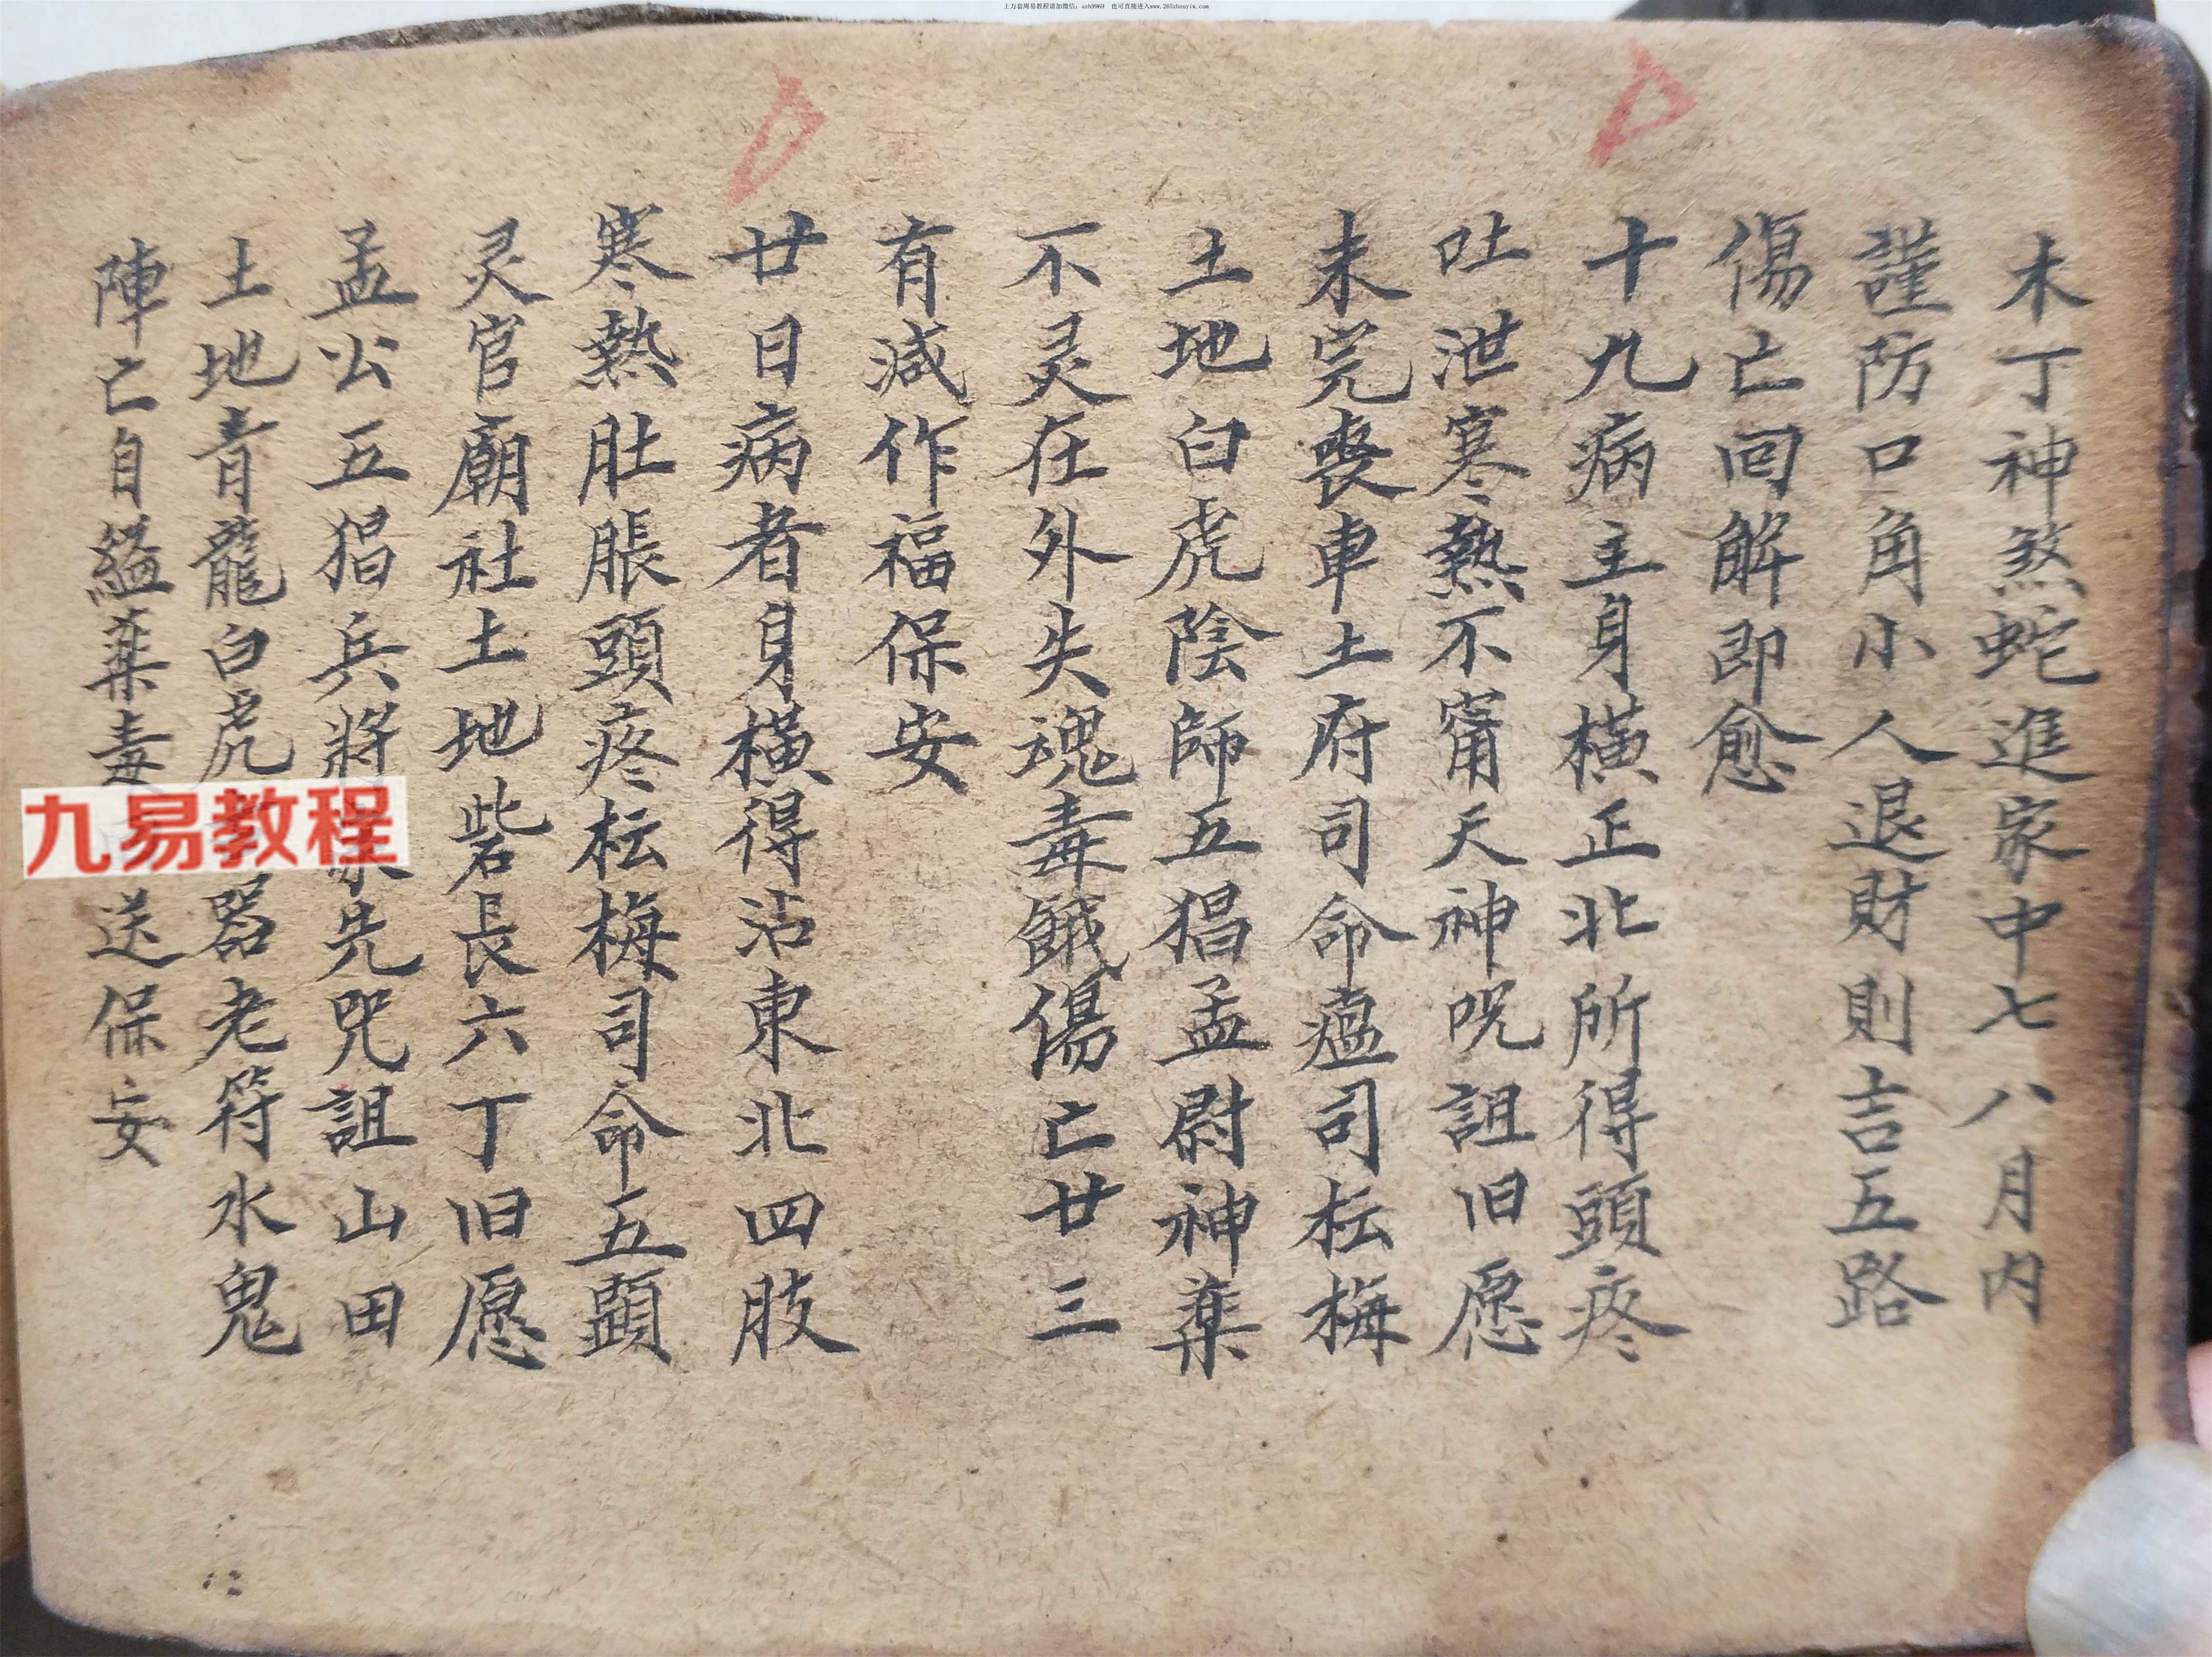 上万套周易教程请加微信：ash9969 也可直接进入www.265zhouyiw.com
木丁神煞蛇進家中七八月内
謹防口角小人退財則吉五路
傷亡回解即愈
十九病主身橫正北所得頭疼
吐泄寒熱不甯天神呪詛旧愿
未完喪車土府司命瘟司枟梅
土地白虎陰師五猖孟尉神藥
不灵在外失魂毒餓傷亡廿三
有减作福保安
廿日病者身橫得沾東北四肢
寒熱肚脹頭疼枟梅司命五顕
灵官廟社土地砦長六丁旧愿
孟公五猖兵將家先咒詛山田
土地青龍白虎器老符水鬼
陣亡自縊藥毒送保安
九易教程